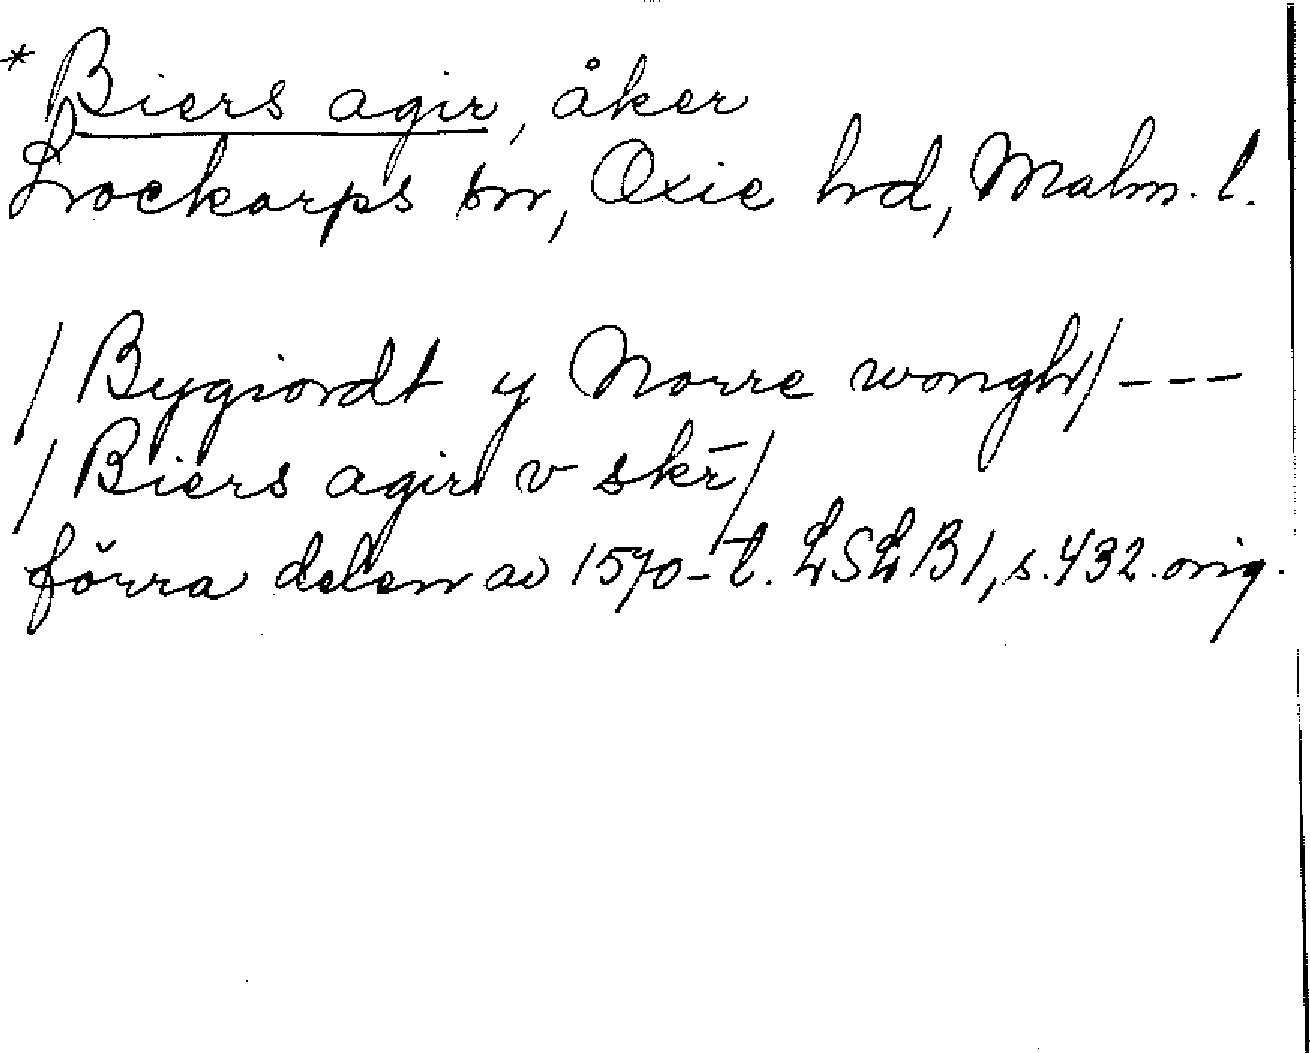 * Biers agir, åker
Lockarps sn, Oxie hd, Malm. l.
/Bygiordt y Norre wongh/ ---
/Biers agir v skr̄/
förra delen av 1570-t. LSLB1, s. 432. orig.